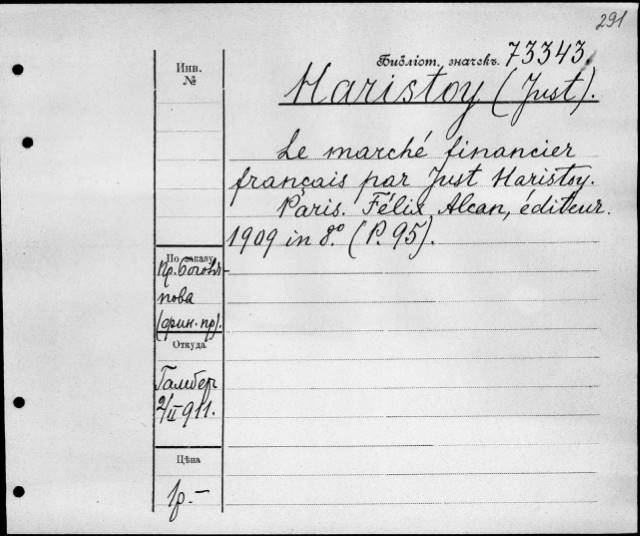 291
Библіот. значекъ. 73343.
Haristoy (Just).
Инв.
№
Le marché financier
français par Just Haristoy.
Paris. Félix Alcan, éditeur.
1909 in 8.° (P. 95).
По заказу
Пр. Боголѣ-
пова
(фин. пр).
Откуда
Гамбер
2/II 911.
Цѣна
1р.-